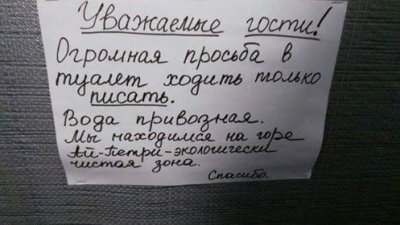 Уважаемые гости!
Огромная просьба в
туалет ходить только
писать.
Вода привозная.
Мы находимся на горе
Ай-Петри-экологически
чистая зона.
Спасибо.